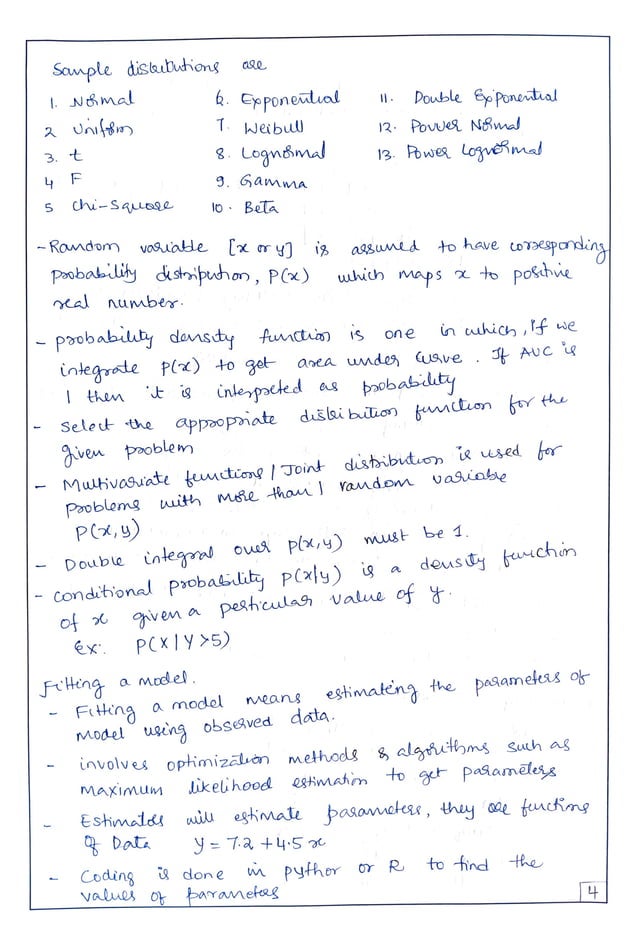 Sample distributions are
1. Normal
2 Uniform
3. t
4 F
5 Chi-Square
6. Exponential
7. Weibull
8. Lognormal
9. Gamma
10. Beta
11. Double Exponential
12. Power Normal
13. Power Lognormal
- Random variable [x or y] is assumed to have corresponding
probability distribution, P(x) which maps x to positive
real number.
- probability density function is one in which, if we
integrate P(x) to get area under curve. If AUC is
1 then it is interpreted as probability
- Select the appropriate distribution function for the
given problem
- Multivariate functions / Joint distribution is used for
problems with more than 1 random variable
P(x,y)
- Double integral over p(x,y) must be 1.
- conditional probability P(x|y) is a density function
of x given a perticular value of y.
Ex: P(X | Y >5)
Fitting a model.
- Fitting a model means estimating the parameters of
model using observed data.
- involves optimization methods & algorithms such as
maximum likelihood estimation to get parameters
- Estimates will estimate parameters, they are functions
of Data y = 7.2 + 4.5 x
- Coding is done in python or R to find the
values of parameters
4